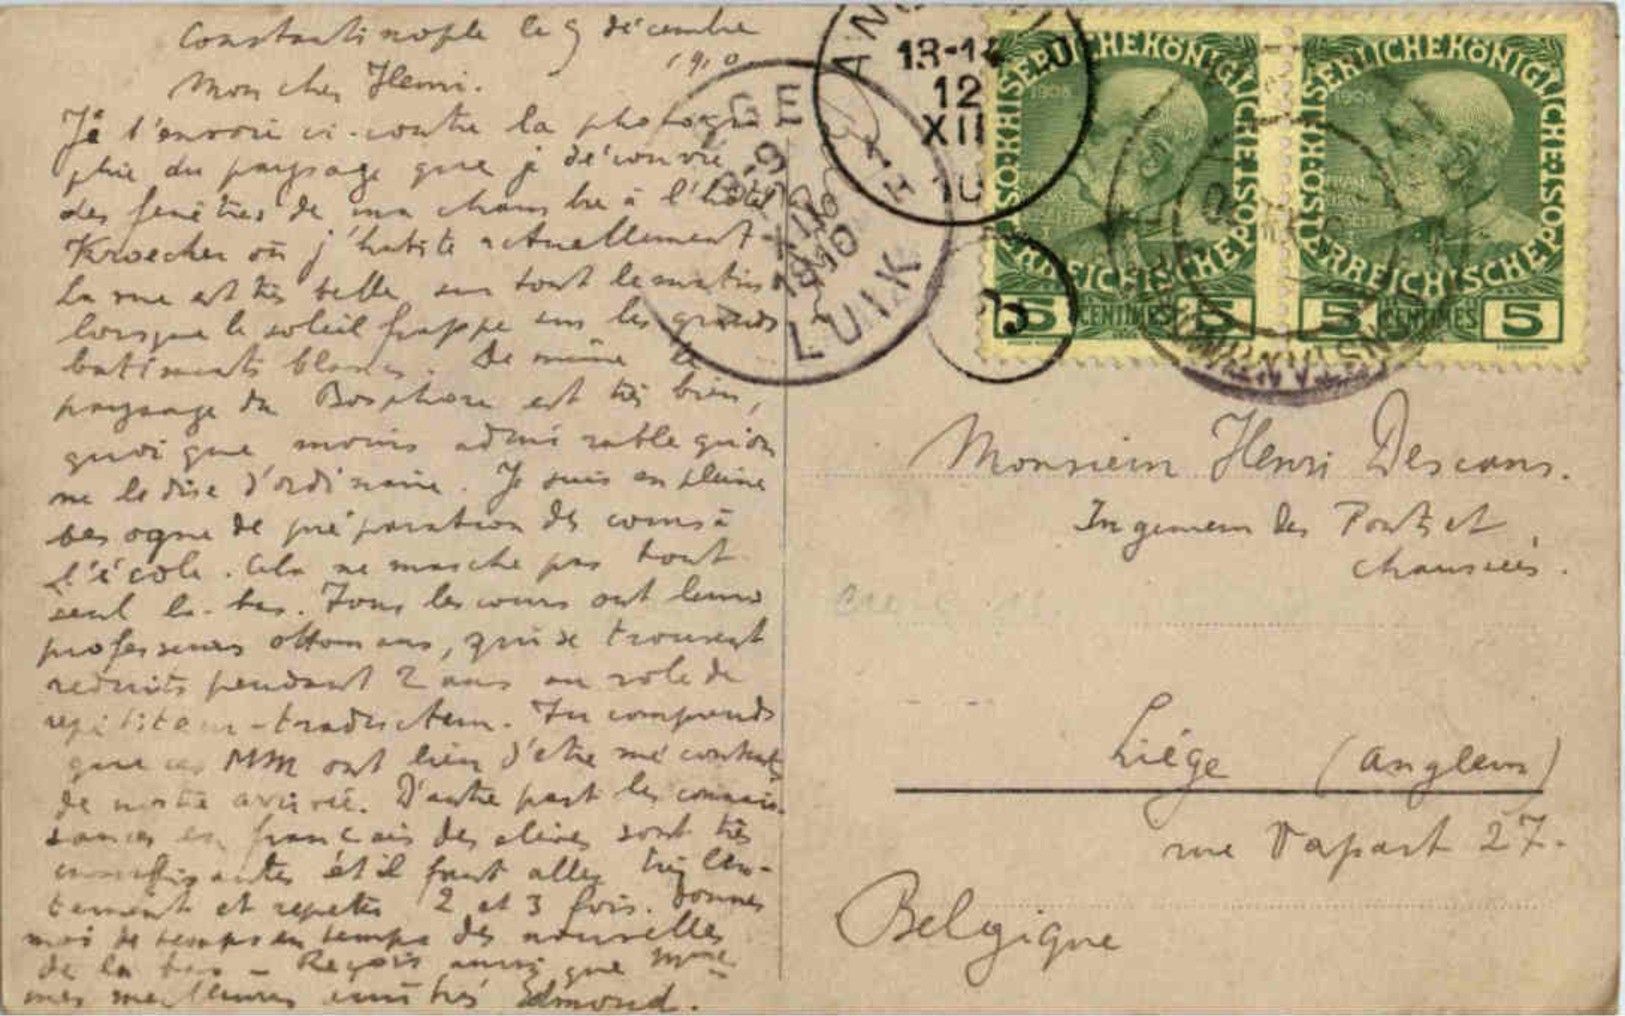 Constantinople le 9 décembre
1910
Mon cher Henri.
Je t'envoie ci-contre la photogra
phie du paysage que je découvre
des fenêtres de ma chambre à l'hôtel
Kroecker où j'habite actuellement -
la vue est très belle surtout le matin
lorsque le soleil frappe sur les grands
batiments blancs. De même le
paysage du Bosphore est très bien,
quoique moins admirable qu'on
ne le dise d'ordinaire. Je suis en pleine
besogne de préparation de cours à
l'école. Cela ne marche pas tout
seul là-bas. Tous les cours ont leurs
professeurs ottomans, qui se trouvent
réduits pendant 2 ans au role de
repetiteur-traducteur. Tu comprends
que ces MM ont lieu d'être mécontents
de notre arrivée. D'autre part les connais-
sances en francais des eleves sont très
insuffisantes et il faut aller très len-
tement et repeter 2 et 3 fois. Donnes
moi de temps en temps des nouvelles
de la bas - Reçois ainsi que Mme
mes meilleures amitiés Edmond.
KAISERLICHEKÖNIGLICHE
ÖSTERREICHISCHE POST
1908
5 CENTIMES 5
KAISERLICHEKÖNIGLICHE
ÖSTERREICHISCHE POST
1908
5 CENTIMES 5
13-14
12
XII
10
LUIK
8-9
12 XII
1910
Monsieur Henri Descans.
Ingenieur des Ponts et
chaussées.
Liége (Angleur)
rue Vapart 27.
Belgique